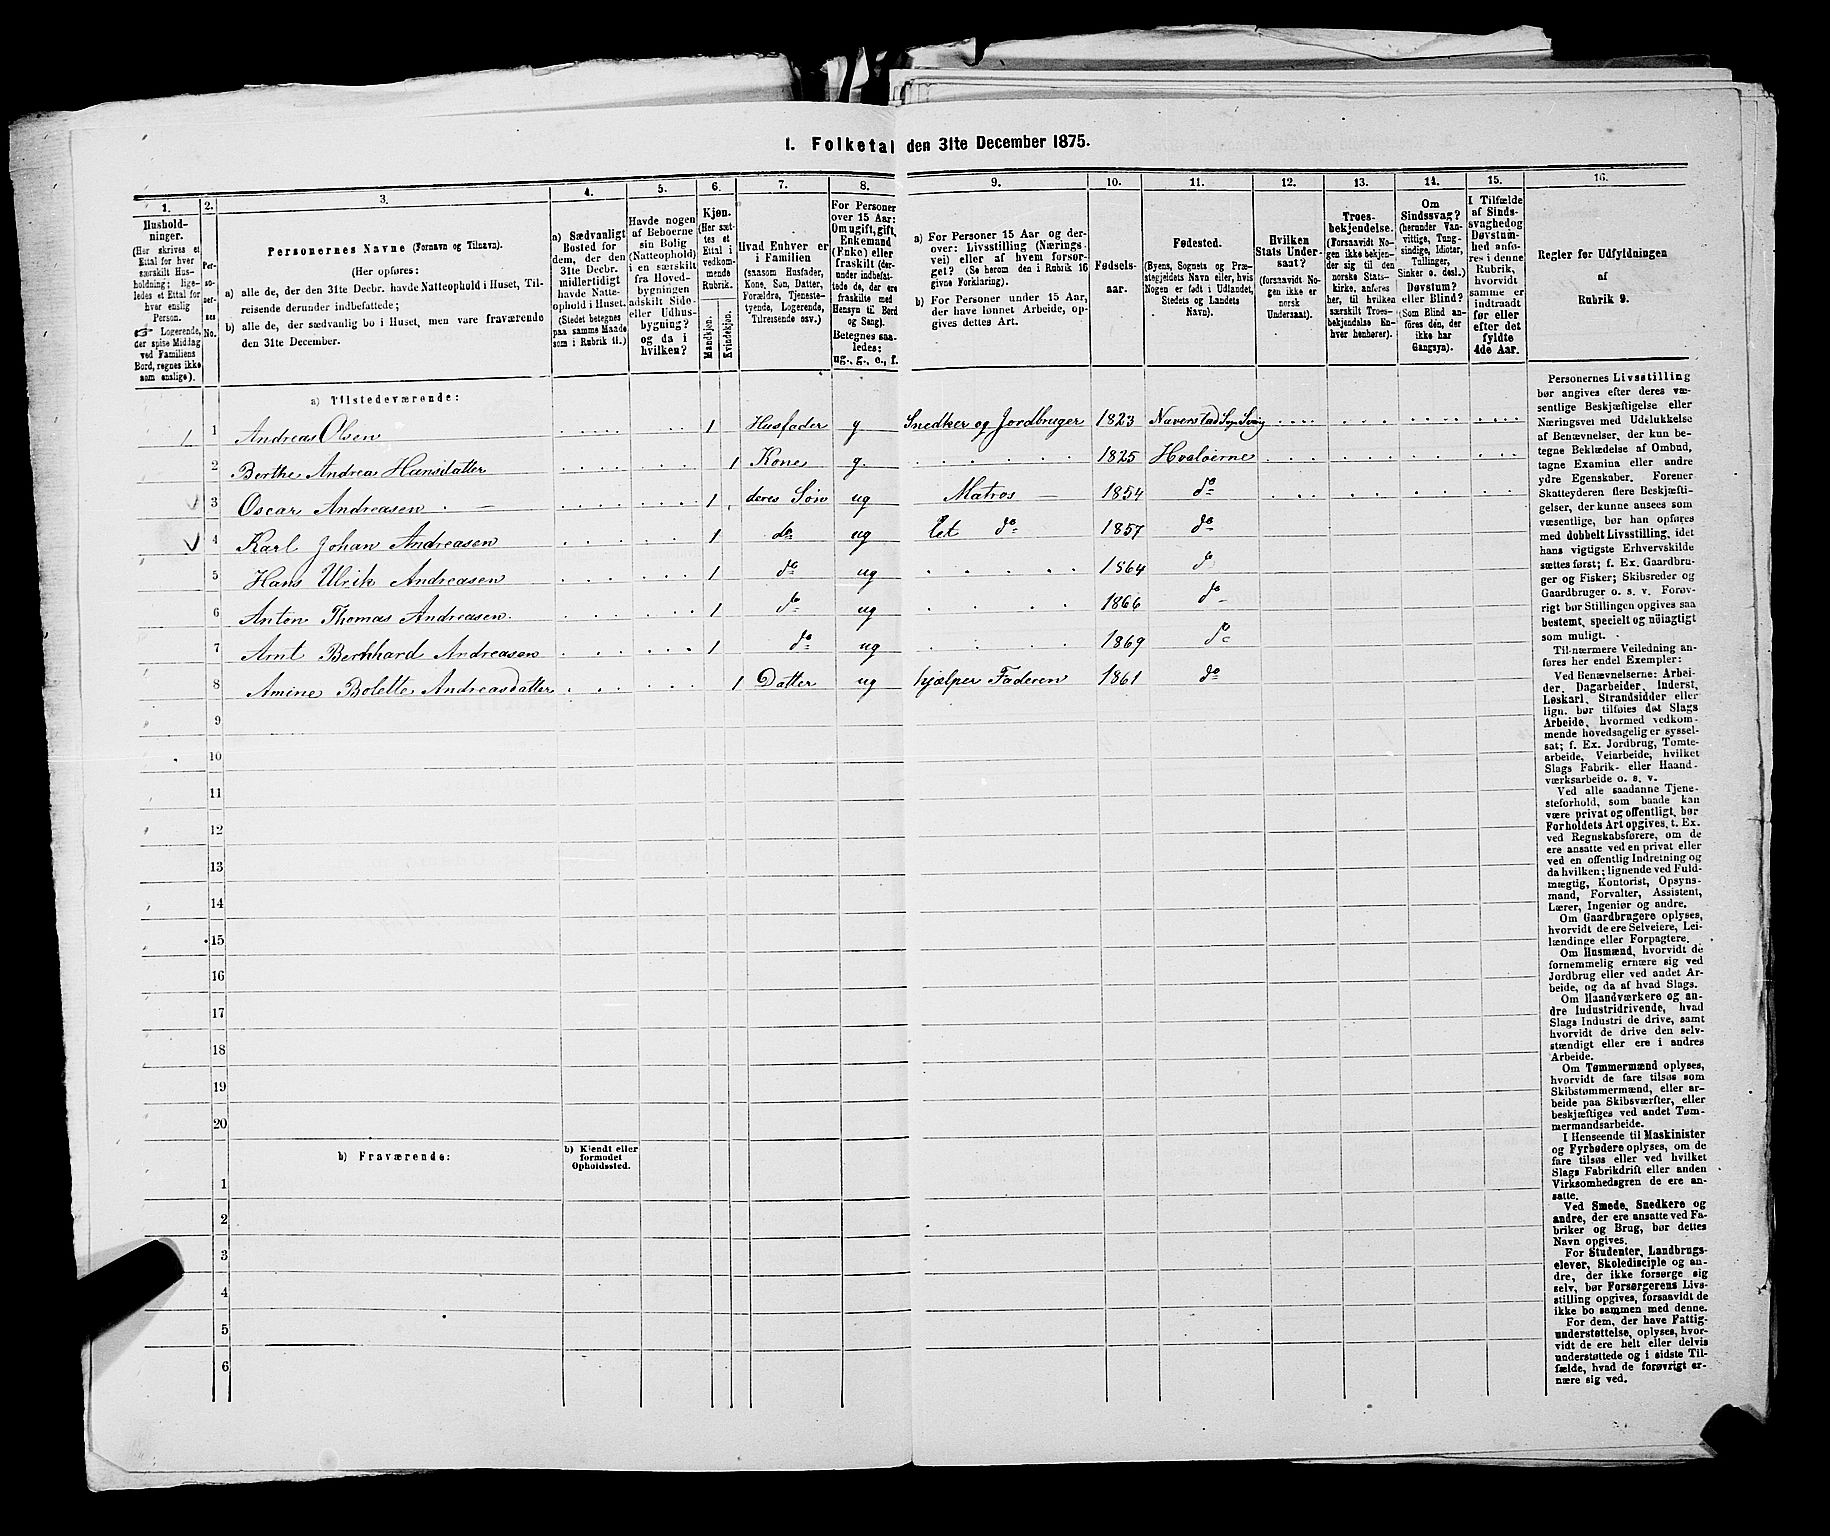 I. Folketal den 31te December 1875.
1. 2. 3. 4. 5. 6. 7. 8. 9. 10. 11. 12. 13. 14. 15. 16.
Husholdninger.
(Her skrives et
Ettal for hver
særskilt Husholdning;
ligeledes et Ettal for
hver enslig
Person.
☞ Logerende,
der spise Middag
ved Familiens
Bord, regnes ikke
som enslige).
Personernes No.
Personernes Navne (Fornavn og Tilnavn).
(Her opføres:
a) alle de, der den 31te Decbr. havde Natteophold i Huset, Tilreisende
derunder indbefattede;
b) alle de, der sædvanlig bo i Huset, men vare fraværende
den 31te December.
a) Sædvanligt
Bosted for
dem, der den
31te Decbr.
midlertidigt
havde Natteophold
i Huset.
(Stedet betegnes
paa samme Maade
som i Rubrik 11.)
Havde nogen
af Beboerne
sin Bolig
(Natteophold)
i en særskilt
fra Hovedbygningen
adskilt Side-
eller Udhusbygning?
og da i
hvilken?
Kjøn.
(Her sættes
et
Ettal i
vedkommende
Rubrik.
Mandkjøn.
Kvindekjøn.
Hvad Enhver er
i Familien
(saasom Husfader,
Kone, Søn, Datter,
Forældre, Tjenestetyende,
Logerende,
Tilreisende osv.)
For Personer
over 15 Aar:
Om ugift, gift,
Enkemand
(Enke) eller
fraskilt (derunder
indbefattede
de, der ere
fraskilte med
Hensyn til Bord
og Seng).
Betegnes saaledes:
ug., g., e., f.
a) For Personer 15 Aar og derover:
Livsstilling (Næringsvei)
eller af hvem forsørget?
(Se herom den i Rubrik 16
givne Forklaring).
b) For Personer under 15 Aar,
der have lønnet Arbeide, opgives
dettes Art.
Fødselsaar.
Fødested.
(Byens, Sognets og Præstegjeldets
Navn eller, hvis
Nogen er født i Udlandet,
Stedets og Landets
Navn).
Hvilken
Stats Undersaat?
(forsaavidt Nogen
ikke er
norsk
Undersaat).
Troesbekjendelse.
(Forsaavidt Nogen
ikke bekjender
sig til den
norske Statskirke,
anføres
her, til hvilken
særskilt Troesbekjendelse
Enhver
henhører).
Om
Sindssvag?
(herunder Vanvittige,
Tungsindige,
Idioter,
Tullinger,
Sinker o. desl.)
Døvstum?
eller Blind?
(Som Blind anføres
den, der
ikke har
Gangsyn).
I Tilfælde
af Sindssvaghed
og
Døvstumhed
anføres
i denne
Rubrik,
hvorvidt
samme er
indtraadt
før eller
efter det
fyldte
4de Aar.
Regler for Udfyldningen
af
Rubrik 9.
a) Tilstedeværende:
1 1 Andreas Olsen 1 Husfader g Snedker og Jordbruger 1823 Naverstad
2 Berthe Andrea Hansdatter 1 Kone g. 1825 Hvaløerne
3 Oscar Andreasen 1 deres Søn ug Matros 1854 do
4 Karl Johan Andreasen 1 do ug Let do 1857 do
5 Hans Ulrik Andreasen 1 do ug 1864 do
6 Anton Thomas Andreasen. 1 do ug 1866 do
7 Arnt Bernhard Andreasen 1 do ug 1869 do
8 Amine Bolette Andreasdatter 1 Datter ug hjælper Faderen 1861 do
9
10
11
12
13
14
15
16
17
18
19
20
b) Fraværende: b) Kjendt eller
formodet
Opholdssted.
1
2
3
4
5
6
Personernes Livsstilling
bør angives efter deres væsentlige
Beskjæftigelse eller
Næringsvei med Udelukkelse
af Benævnelser, der kun betegne
Beklædelse af Ombud,
tagne Examina eller andre
ydre Egenskaber. Forener
Skatteyderen flere Beskjæftigelser,
der kunne ansees som
væsentlige, bør han opføres
med dobbelt Livsstilling, idet
hans vigtigste Erhvervskilde
sættes først; f. Ex. Gaardbruger
og Fisker; Skibsreder og
Gaardbruger o. s. v. Forøvrigt
bør Stillingen opgives saa
bestemt, specielt og nöiagtigt
som muligt.
Til nærmere Veiledning anføres
her endel Exempler:
Ved Benævnelserne: Arbeider,
Dagarbeider, Inderst,
Løskarl, Strandsidder eller
lign. bør tilføies det Slags
Arbeide, hvormed vedkommende
hovedsagelig er sysselsat;
f. Ex. Jordbrug, Tomtearbeide,
Veiarbeide, hvilket
Slags Fabrik- eller Haandværksarbeide
o. s. v.
Ved alle saadanne Tjenesteforhold,
som baade kan
være privat og offentligt, bør
Forholdets Art opgives, t. Ex.
ved Regnskabsførere, om de
ere ansatte ved en privat eller
ved en offentlig Indretning og
da hvilken; lignende ved Fuldmægtig,
Kontorist, Opsynsmand,
Forvalter, Assistent,
Lærer, Ingeniør og andre.
Om Gaardbrugere oplyses,
hvorvidt de ere Selveiere, Leilændinge
eller Forpagtere.
Om Husmænd, hvorvidt de
fornemmelig ernære sig ved
Jordbrug eller ved andet Arbeide,
og da af hvad Slags.
Om Haandværkere og andre
Industridrivende, hvad
Slags Industri de drive, samt
hvorvidt de drive den selvstændigt
eller ere i andres
Arbeide.
Om Tømmermænd oplyses,
hvorvidt de fare tilsøs som
Skibstømmermænd, eller arbeide
paa Skibsværfter, eller
beskjæftiges ved andet Tømmermandsarbeide.
I Henseende til Maskinister
og Fyrbødere oplyses, om de
fare tilsøs eller ved hvilket
Slags Fabrikdrift eller anden
Virksomhedsgren de ere ansatte.
Ved Smede, Snedkere og
andre, der ere ansatte ved Fabriker
og Brug, bør dettes
Navn opgives.
For Studenter, Landbrugselever,
Skoledisciple og andre,
der ikke forsørge sig
selv, bør Forsørgerens Livsstilling
opgives, forsaavidt de
ikke bo sammen med denne.
For dem, der have Fattigunderstøttelse,
oplyses, hvorvidt
de ere helt eller delvis
understøttede og i sidste Tilfælde,
hvad de forøvrigt ernære
sig ved.